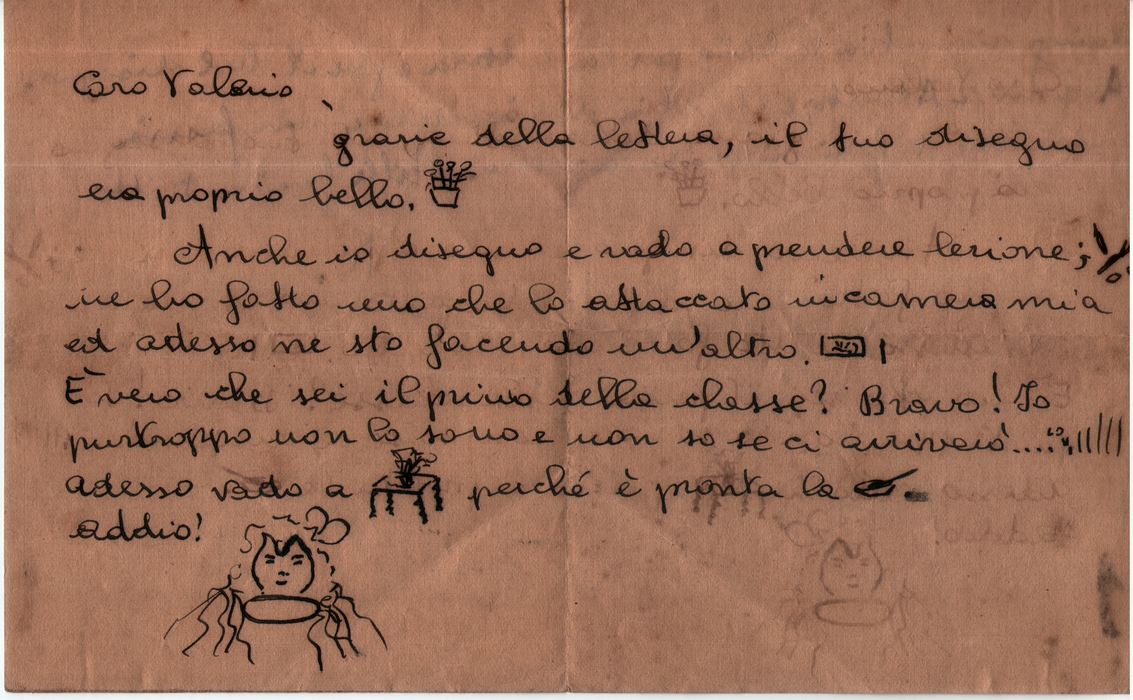 Caro Valerio
grazie della lettera, il tuo disegno
era proprio bello.
Anche io disegno e vado a prendere lezione;
ne ho fatto uno che lo attaccato in camera mia
ed adesso ne sto facendo un'altro.
È vero che sei il primo della classe? Bravo! Io
purtroppo non lo sono e non so se ci arriverò....
adesso vado a perché è pronta la
addio!